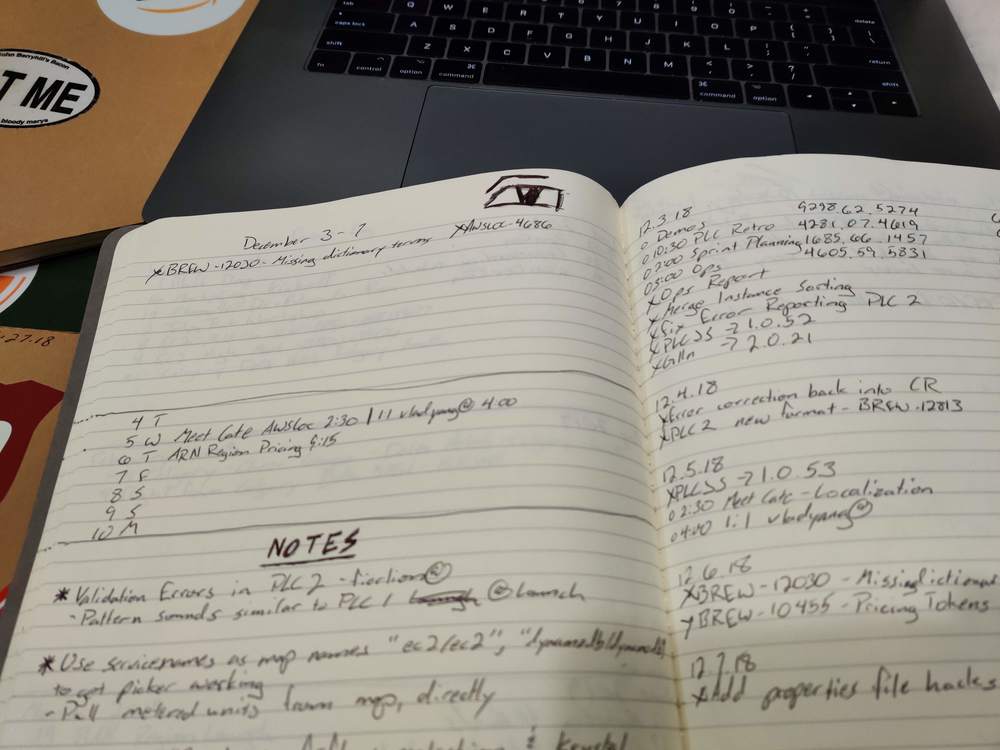 T ME
bloody marys
27.18
tab Q W E R T Y U I O P
caps lock A S D F G H J K L return
shift Z X C V B N M shift
fn control option command command option
delete
December 3 - 7
xBREW-12030 - Missing dictionary terms
xAWSLOC-4686
4 T
5 W Meet Cate AWSLOC 2:30 / 1:1 vladyang@ 4:00
6 T ARN Region Pricing 9:15
7 F
8 S
9 S
10 M
NOTES
* Validation Errors in PLC2 -
- Pattern sounds similar to PLC1 @launch
* Use servicenames as map names "ec2/ec2",
to get picker working
- Pull metered units from map, directly
12.3.18
o Demos 9298.62.5274
o 10:30 PLC Retro 4281.07.4619
o 2:00 Sprint Planning 1685.66.1457
o 5:00 Ops 4605.59.5831
x Ops Report
x Merge Instance Sorting
x Fix Error Reporting PLC2
x PLCSS → 1.0.52
→ 2.0.21
12.4.18
x Error correction back into CR
x PLC2 new format - BREW-12813
12.5.18
x PLCSS → 1.0.53
o 2:30 Meet Cate - Localization
o 4:00 1:1 vladyang@
12.6.18
x BREW-12030 - Missing
x BREW-10455 - Pricing Tokens
12.7.18
x Add properties file hacks